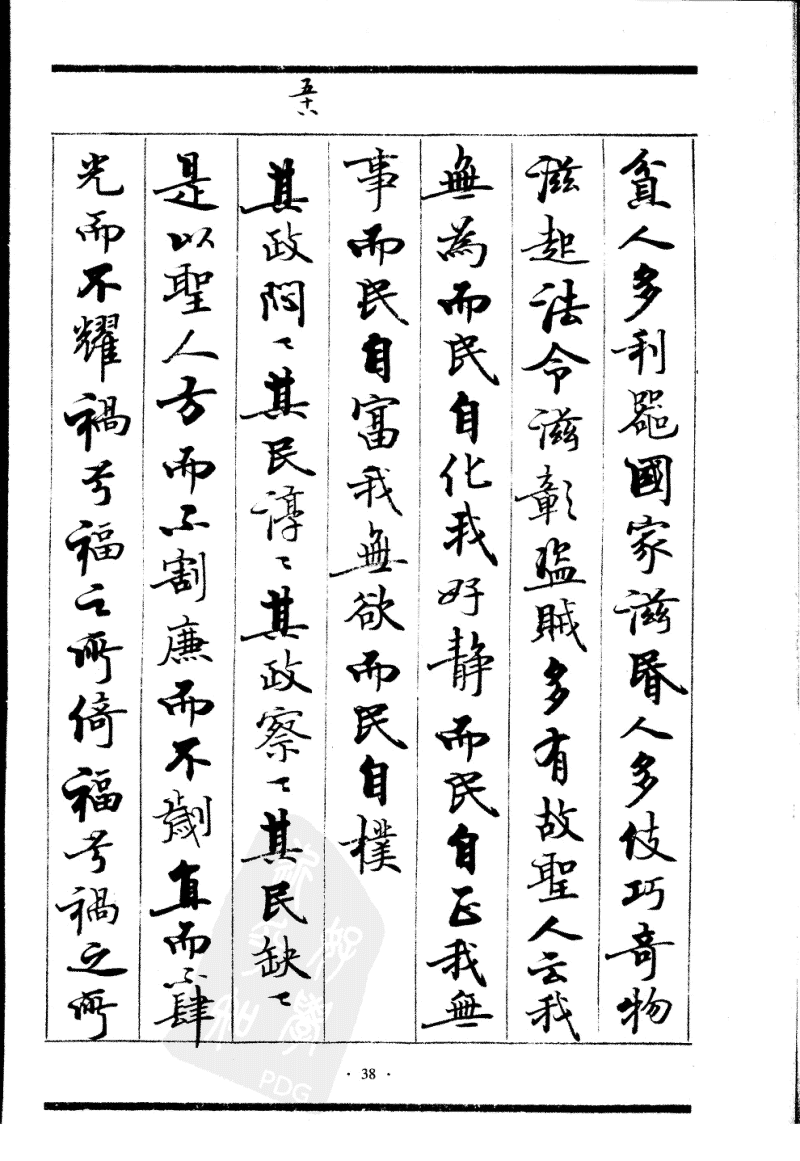 貧人多利器國家滋昬人多伎巧奇物
滋起法令滋彰盜賊多有故聖人云我
無為而民自化我好静而民自正我無
事而民自富我無欲而民自樸
五十八
其政悶々其民淳々其政察々其民缺々
是以聖人方而不割廉而不劌直而不肆
光而不耀禍兮福之所倚福兮禍之所
· 38 ·
PDG